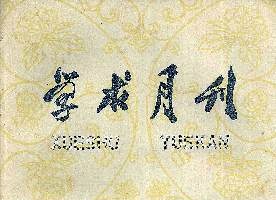 学术月刊
XUESHU YUEKAN